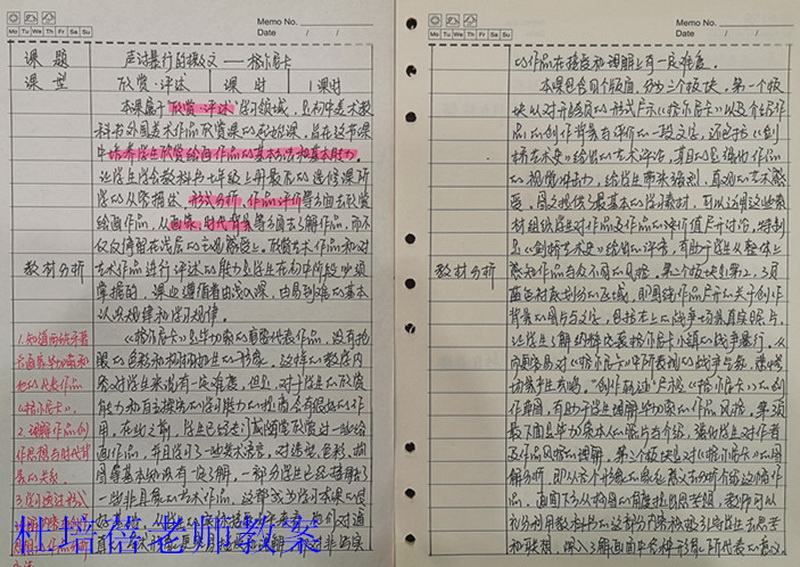 Memo No.
Mo Tu We Th Fr Sa Su
Date / /
课题 声讨暴行的檄文——格尔尼卡
课型 欣赏·评述 课时 1课时
本课属于"欣赏·评述"学习领域，是初中美术教
科书外国美术作品欣赏课的起始课，旨在这节课
中培养学生欣赏绘画作品的基本方法和基本能力。
让学生学会教科书七年级上册最后的选修课所
学的从描述、形式分析、作品评价等方面去欣赏
绘画作品，从画家、时代背景等方面去了解作品，而不
仅仅停留在浅层的主观感受上。欣赏艺术作品和对
教材分析 艺术作品进行评述的能力是学生在初中阶段必须
掌握的，课业遵循着由浅入深，由易到难的基本
认识规律和学习规律。
《格尔尼卡》是毕加索的重要代表作品，没有艳
丽的色彩和栩栩如生的形象。这样的教学内
容对学生来说有一定难度，但是，对于学生的欣赏
能力和自主探究的学习能力的提高会有很好的作
用。在此之前，学生已经走门或随堂欣赏过一些绘
画作品，并且学习了一些美术语言，对造型、色彩、构
图等基本知识有一定了解，一部分学生已经接触了
一些非具象的艺术作品，这都成为学习本课的良
1.知道西班牙著
名画家毕加索和
他的代表作品
《格尔尼卡》。
2.理解作品创
作思想与时代背
景的关系。
杜培蓓老师教案
Memo No.
Mo Tu We Th Fr Sa Su
Date / /
的作品在接受和理解上有一定难度。
本课包含四个版面，分为三个板块。第一个板
块以对开跨页的形式展示《格尔尼卡》以及介绍作
品的创作背景与评价的一段文字，还包括《剑
桥艺术史》给出的艺术评论，其目的是强化作品
的视觉冲击力，给学生带来强烈、直观的艺术感
受。图文提供了最基本的学习素材，可以运用这些素
材组织学生对作品及作品的评价值展开讨论，特别
是《剑桥艺术史》给出的评言，有助于学生从整体上
教材分析 感知作品与众不同的风格。第二个板块是第2、3页
蓝色衬底划分的区域，即围绕作品展开的关于创作
背景的图片与文字，包括左上的战争场景真实照片，
让学生了解纳粹空袭格尔尼卡小镇的战争暴行，从
而更容易对《格尔尼卡》中所表现的战争气氛、悲惨
场景产生共鸣。"创作轨迹"展示《格尔尼卡》的创
作草图，有助于学生理解毕加索的作品风格。第3页
最下面是毕加索本人的照片与介绍，强化学生对作者
及作品风格的理解。第三个板块是对《格尔尼卡》的图
解分析，即从各个形象的象征意义去分析介绍这幅作
品。画面下方从构图的角度提出思考题，教师可以
充分利用教科书的这部分内容积极引导学生去思考
和联想，深入了解画面中各种形象所代表的意义。